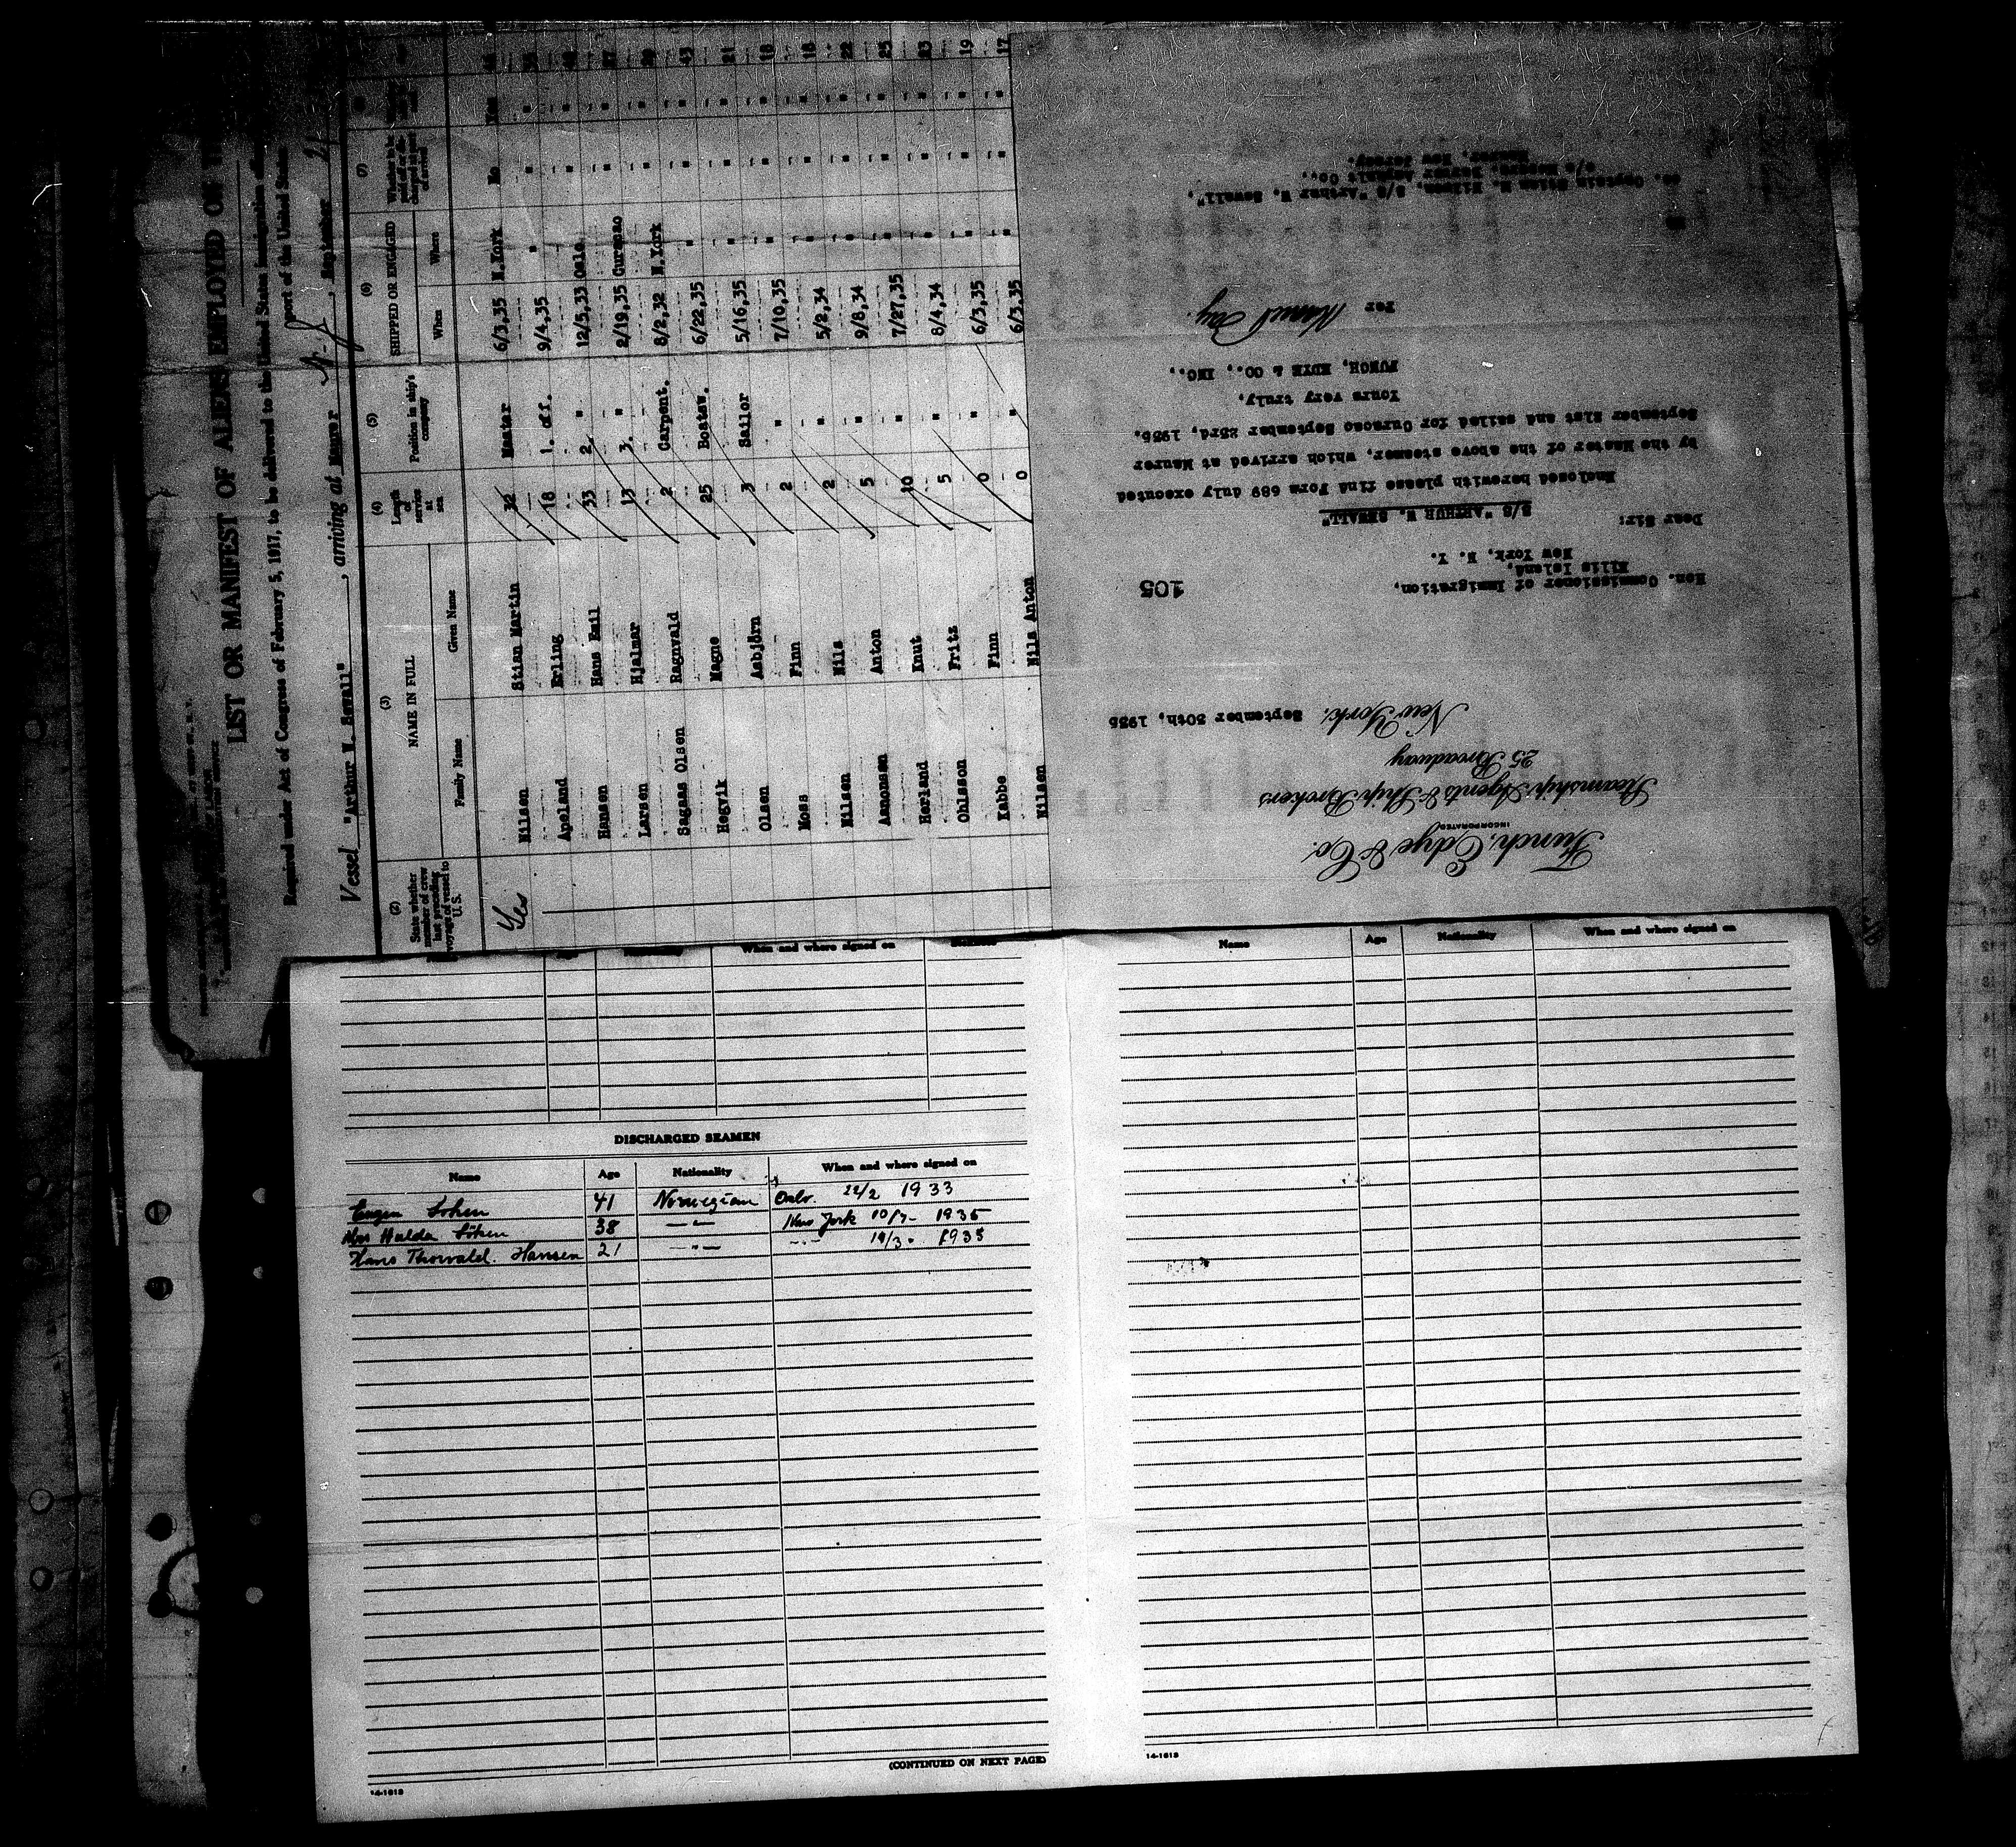 LIST OR MANIFEST OF ALIENS EMPLOYED ON
Required under Act of Congress of February 5, 1917, to be delivered to the United States immigration
port of the United States
Vessel "Arthur W. Sewall", arriving at Maurer N. J., September
(2) (3) (4) (5) (6) (7)
State whether member of crew last preceding voyage of vessel to U.S. NAME IN FULL Length of service at sea Position in ship's company SHIPPED OR ENGAGED Whether to be paid off or discharged at port of arrival
Family Name Given Name When Where
Yes Nilsen Stian Martin 32 Master 6/3,35 N.York No Yes
Apeland Erling 18 1. off. 9/4,35 " " "
Hansen Hans Emil 33 2. " 12/5,33 Oslo " "
Larsen Hjalmar 13 3. " 2/19,35 Curacao " " 27
Sagaas Olsen Ragnvald 2 Carpent. 8/2,32 N.York " "
Hegvik Magne 25 Boatsw. 6/22,35 " " " 43
Olsen Asbjörn 3 Sailor 5/16,35 " " " 21
Moss Finn 2 " 7/10,35 " " " 18
Nilsen Nils 2 " 5/2,34 " " " 18
Aanonsen Anton 5 " 9/8,34 " " " 22
Herland Knut 10 " 7/27,35 " " " 25
Ohlsson Fritz 5 " 8/4,34 " " " 23
Kabbe Finn 0 " 6/3,35 " " " 19
Nilsen Nils Anton 0 " 6/3,35 " " " 17
Funch, Edye & Co.
INCORPORATED
Steamship Agents & Ship Brokers
25 Broadway
New York, September 30th, 1935
Hon. Commissioner of Immigration,
Ellis Island,
New York, N. Y.
105
Dear Sir:
S/S "ARTHUR W. SEWALL"
Enclosed herewith please find Form 689 duly executed
by the Master of the above steamer, which arrived at Maurer
September 21st and sailed for Curacao September 23rd, 1935.
Yours very truly,
FUNCH, EDYE & CO., INC.,
Per
cc. Captain Stian M. Nilsen, S/S "Arthur W. Sewall",
c/o Messrs. Barber Asphalt Co.,
Maurer, New Jersey.
When and where signed on
DISCHARGED SEAMEN
Name Age Nationality When and where signed on
Eugen Söhen 41 Norwegian Oslo. 22/2 1933
Mrs Hulda Söhen 38 - " - New York 10/7- 1935
Hans Thorvald. Hansen 21 - " - - " - 19/3- 1935
(CONTINUED ON NEXT PAGE)
14-1613
Name Age Nationality When and where signed on
14-1613